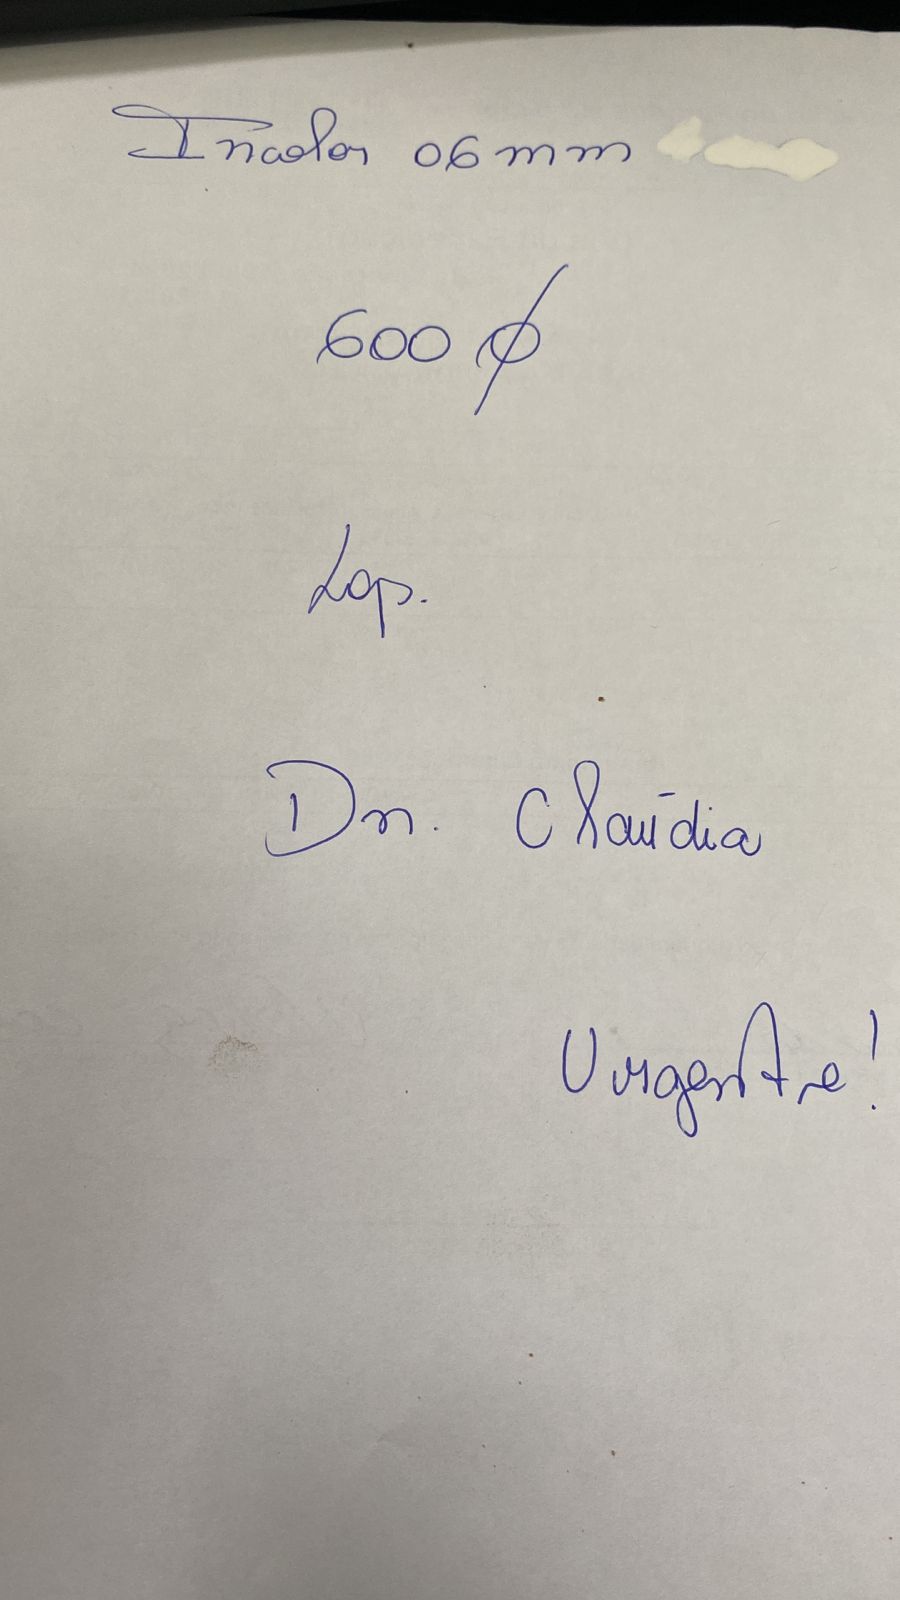 Incolor 06mm
600 ø
Lap.
Dr. Claúdia
Urgente!